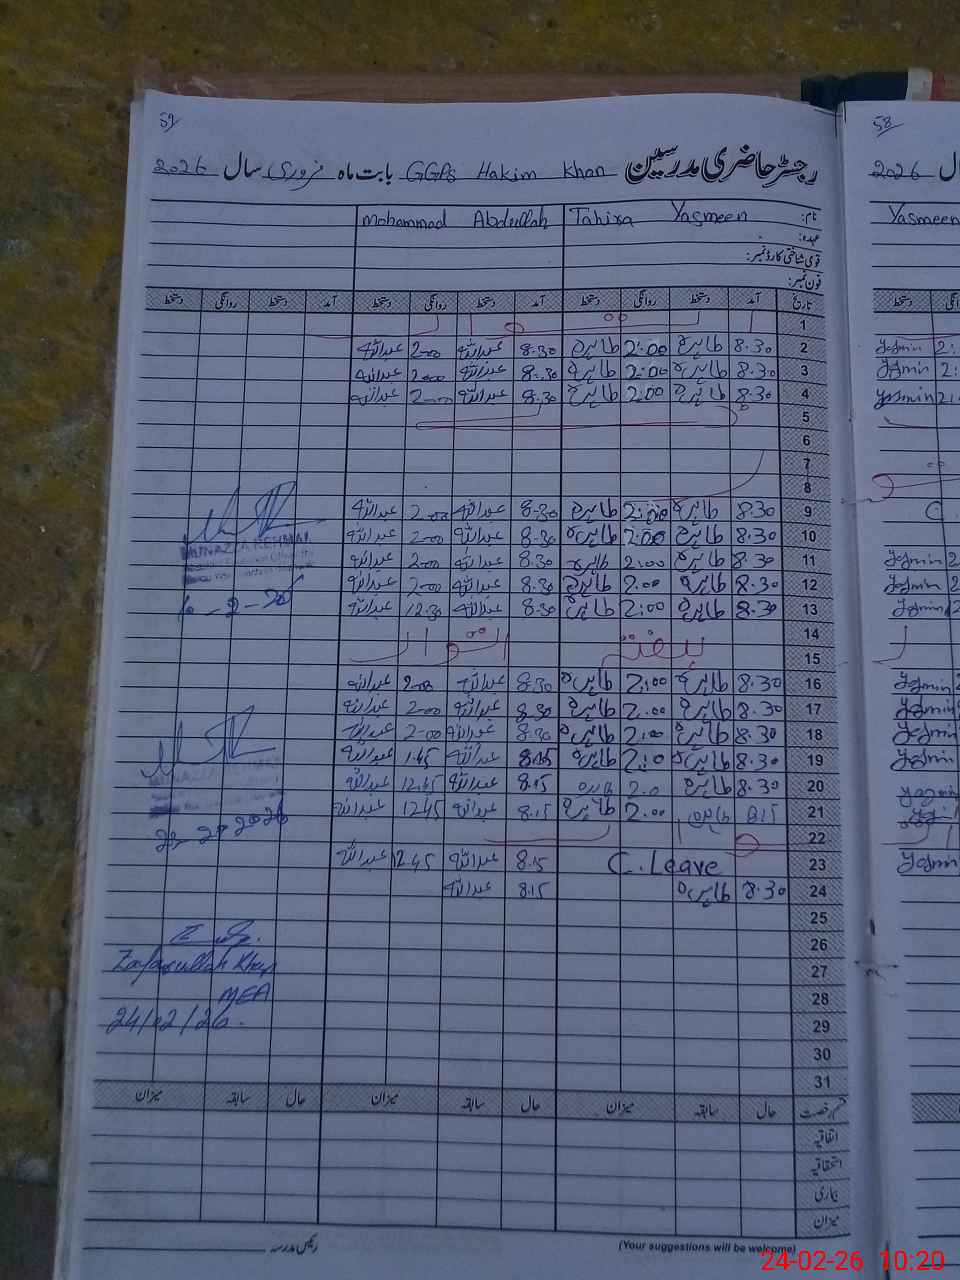 59
رجسٹر حاضری مدرسین GGPS Hakim Khan بابت ماہ فروری سال 2026
نام: Tahira Yasmeen Mohammad Abdullah
عہدہ:
قومی شناختی کارڈ نمبر:
فون نمبر:
تاریخ آمد دستخط روانگی دستخط آمد دستخط روانگی دستخط آمد دستخط روانگی دستخط
1
2 8.30 طاہرہ 2:00 طاہرہ 8.30 عبداللہ 2-00 عبداللہ
3 8.30 طاہرہ 2:00 طاہرہ 8.30 عبداللہ 2-00 عبداللہ
4 8.30 طاہرہ 2:00 طاہرہ 8.30 عبداللہ 2-00 عبداللہ
5
6
7
8
9 8.30 طاہرہ 2:00 طاہرہ 8.30 عبداللہ 2-00 عبداللہ
10 8.30 طاہرہ 2:00 طاہرہ 8.30 عبداللہ 2-00 عبداللہ
11 8.30 طاہرہ 2:00 طاہرہ 8.30 عبداللہ 2-00 عبداللہ
12 8.30 طاہرہ 2.00 طاہرہ 8.30 عبداللہ 2-00 عبداللہ
13 8.30 طاہرہ 2:00 طاہرہ 8.30 عبداللہ 12.30 عبداللہ
14 ہفتہ اتوار
15
16 8.30 طاہرہ 2:00 طاہرہ 8.30 عبداللہ 2-00 عبداللہ
17 8.30 طاہرہ 2.00 طاہرہ 8.30 عبداللہ 2-00 عبداللہ
18 8.30 طاہرہ 2:00 طاہرہ 8.30 عبداللہ 2-00 عبداللہ
19 8.30 طاہرہ طاہرہ 8.15 عبداللہ 1.45 عبداللہ
20 8.30 طاہرہ 8.15 عبداللہ 12.45 عبداللہ
21 8.15 طاہرہ 2.00 طاہرہ 8.15 عبداللہ 12.45 عبداللہ
22
23 C. Leave 8.15 عبداللہ 12.45 عبداللہ
24 8.30 طاہرہ 8.15 عبداللہ
25
26
27
28
29
30
31
Zafarullah Khan
MEA
24/02/26.
قسم رخصت حال سابقہ میزان حال سابقہ میزان حال سابقہ میزان
اتفاقیہ
استحقاقیہ
بیماری
میزان
(Your suggestions will be welcome)
رئیس مدرسہ
58
2026
Yasmeen
24-02-26 10:20